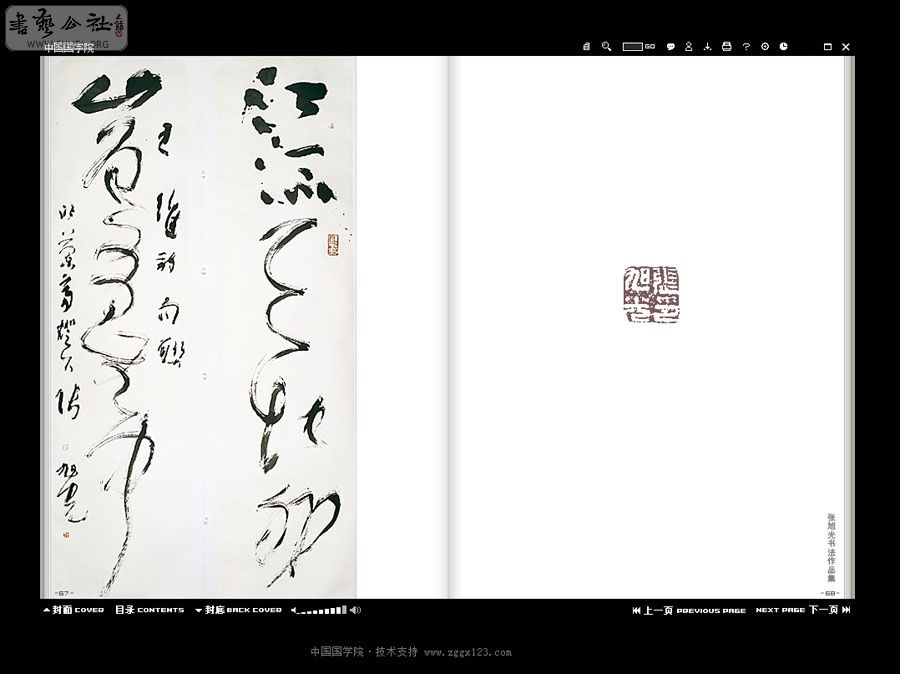 書藝公社
中国国学院
GO
江流天地外
山色有無中
王維詩句聯
張旭光书法作品集
-67-
-68-
封面 COVER
目录 CONTENTS
封底 BACK COVER
上一页 PREVIOUS PAGE
NEXT PAGE 下一页
中国国学院·技术支持 www.zggx123.com